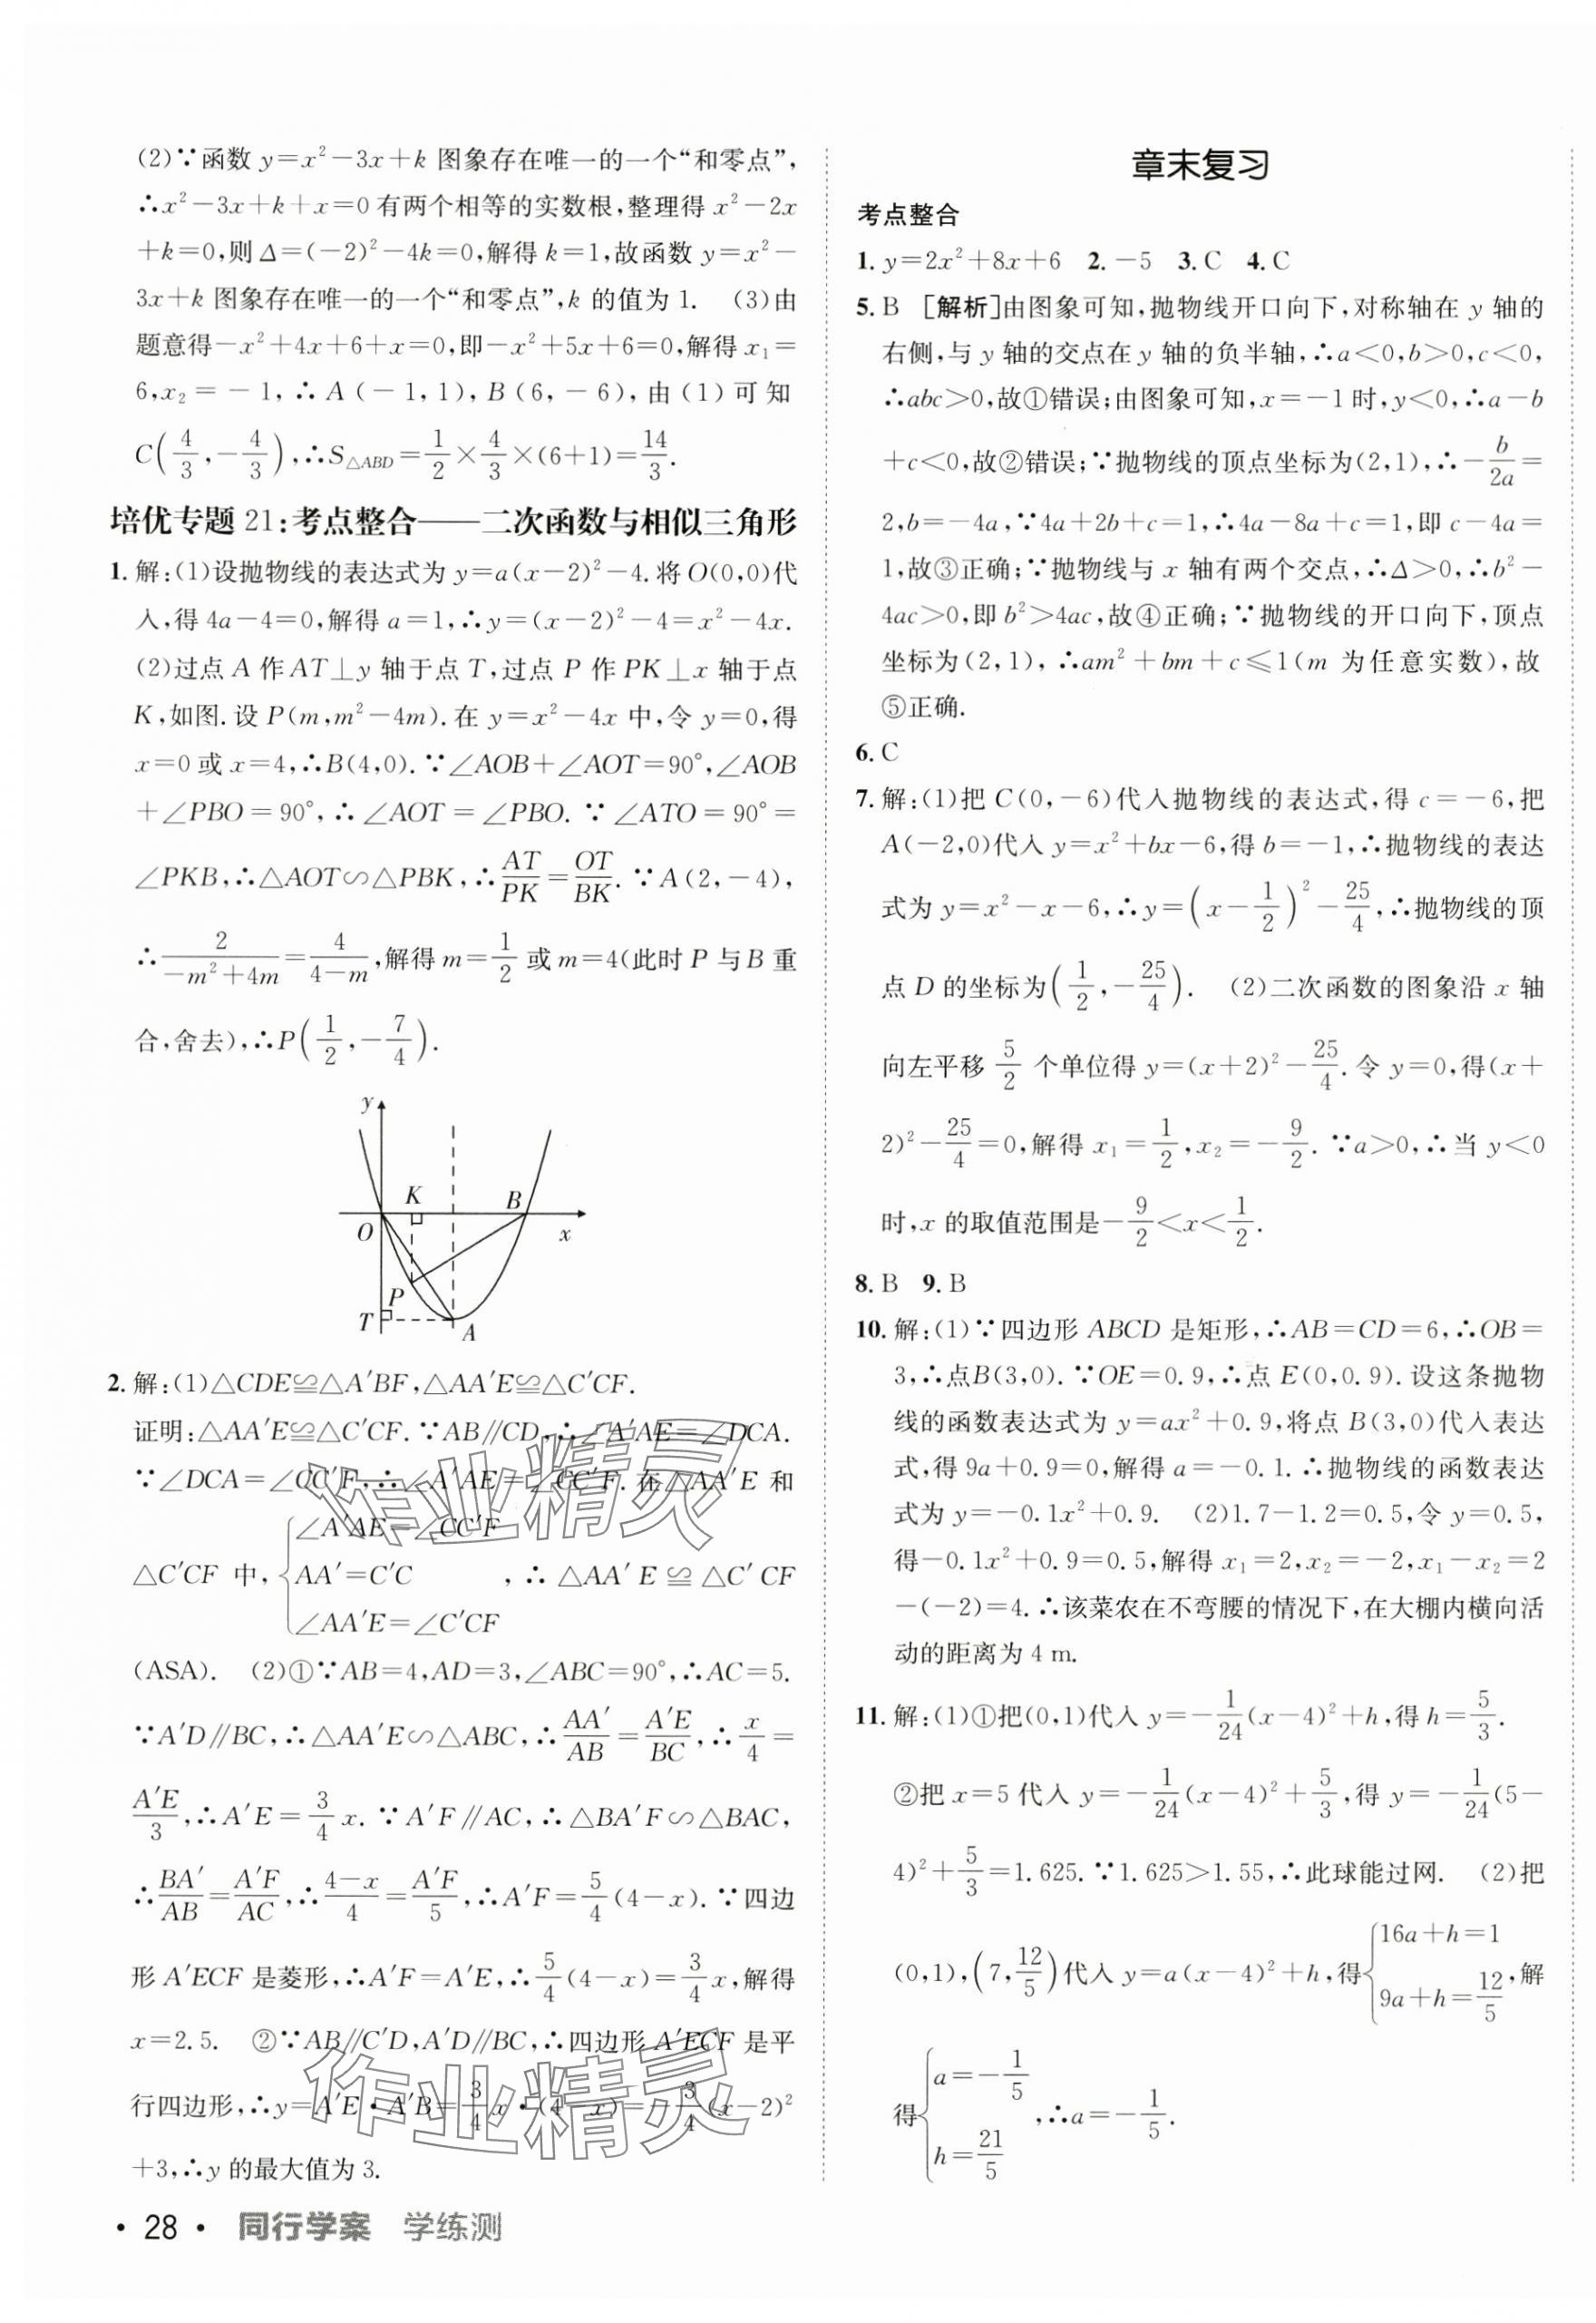 (2)∵函数 y=x²-3x+k 图象存在唯一的一个“和零点”,
∴x²-3x+k+x=0 有两个相等的实数根,整理得 x²-2x
+k=0,则 Δ=(-2)²-4k=0,解得 k=1,故函数 y=x²-
3x+k 图象存在唯一的一个“和零点”,k 的值为 1. (3)由
题意得-x²+4x+6+x=0,即-x²+5x+6=0,解得 x₁=
6,x₂=-1,∴A(-1,1),B(6,-6),由(1)可知
C(4/3,-4/3),∴S△ABD=1/2×4/3×(6+1)=14/3.
培优专题 21:考点整合——二次函数与相似三角形
1. 解:(1)设抛物线的表达式为 y=a(x-2)²-4.将O(0,0)代
入,得 4a-4=0,解得 a=1,∴y=(x-2)²-4=x²-4x.
(2)过点 A 作 AT⊥y 轴于点 T,过点 P 作 PK⊥x 轴于点
K,如图.设 P(m,m²-4m).在 y=x²-4x 中,令 y=0,得
x=0 或 x=4,∴B(4,0).∵∠AOB+∠AOT=90°,∠AOB
+∠PBO=90°,∴∠AOT=∠PBO.∵∠ATO=90°=
∠PKB,∴△AOT∽△PBK,∴AT/PK=OT/BK.∵A(2,-4),
∴2/(-m²+4m)=4/(4-m),解得 m=1/2 或 m=4(此时 P 与 B 重
合,舍去),∴P(1/2,-7/4).
y
K
B
O
x
P
T
A
2. 解:(1)△CDE≌△A′BF,△AA′E≌△C′CF.
证明:△AA′E≌△C′CF.∵AB∥CD,∴∠A′AE=∠DCA.
∵∠DCA=∠CC′F,∴∠A′AE=∠CC′F.在△AA′E 和
△C′CF 中,{∠A′AE=∠CC′F
AA′=C′C
∠AA′E=∠C′CF
,∴△AA′E≌△C′CF
(ASA). (2)①∵AB=4,AD=3,∠ABC=90°,∴AC=5.
∵A′D∥BC,∴△AA′E∽△ABC,∴AA′/AB=A′E/BC,∴x/4=
A′E/3,∴A′E=3/4x.∵A′F∥AC,∴△BA′F∽△BAC,
∴BA′/AB=A′F/AC,∴(4-x)/4=A′F/5,∴A′F=5/4(4-x).∵四边
形 A′ECF 是菱形,∴A′F=A′E,∴5/4(4-x)=3/4x,解得
x=2.5. ②∵AB∥C′D,A′D∥BC,∴四边形 A′ECF 是平
行四边形,∴y=A′E·A′B=3/4x·(4-x)=-3/4(x-2)²
+3,∴y 的最大值为 3.
· 28 · 同行学案 学练测
章末复习
考点整合
1. y=2x²+8x+6 2. -5 3. C 4. C
5. B [解析]由图象可知,抛物线开口向下,对称轴在 y 轴的
右侧,与 y 轴的交点在 y 轴的负半轴,∴a<0,b>0,c<0,
∴abc>0,故①错误;由图象可知,x=-1 时,y<0,∴a-b
+c<0,故②错误;∵抛物线的顶点坐标为(2,1),∴-b/2a=
2,b=-4a,∵4a+2b+c=1,∴4a-8a+c=1,即 c-4a=
1,故③正确;∵抛物线与 x 轴有两个交点,∴Δ>0,∴b²-
4ac>0,即 b²>4ac,故④正确;∵抛物线的开口向下,顶点
坐标为(2,1),∴am²+bm+c≤1(m 为任意实数),故
⑤正确.
6. C
7. 解:(1)把 C(0,-6)代入抛物线的表达式,得 c=-6,把
A(-2,0)代入 y=x²+bx-6,得 b=-1,∴抛物线的表达
式为 y=x²-x-6,∴y=(x-1/2)²-25/4,∴抛物线的顶
点 D 的坐标为(1/2,-25/4). (2)二次函数的图象沿 x 轴
向左平移 5/2 个单位得 y=(x+2)²-25/4.令 y=0,得(x+
2)²-25/4=0,解得 x₁=1/2,x₂=-9/2.∵a>0,∴当 y<0
时,x 的取值范围是-9/2<x<1/2.
8. B 9. B
10. 解:(1)∵四边形 ABCD 是矩形,∴AB=CD=6,∴OB=
3,∴点B(3,0).∵OE=0.9,∴点 E(0,0.9).设这条抛物
线的函数表达式为 y=ax²+0.9,将点 B(3,0)代入表达
式,得 9a+0.9=0,解得 a=-0.1.∴抛物线的函数表达
式为 y=-0.1x²+0.9. (2)1.7-1.2=0.5,令 y=0.5,
得-0.1x²+0.9=0.5,解得 x₁=2,x₂=-2,x₁-x₂=2
-(-2)=4.∴该菜农在不弯腰的情况下,在大棚内横向活
动的距离为 4 m.
11. 解:(1)①把(0,1)代入 y=-1/24(x-4)²+h,得 h=5/3.
②把 x=5 代入 y=-1/24(x-4)²+5/3,得 y=-1/24(5-
4)²+5/3=1.625.∵1.625>1.55,∴此球能过网. (2)把
(0,1),(7,12/5)代入 y=a(x-4)²+h,得{16a+h=1
9a+h=12/5
,解
得{a=-1/5
h=21/5
,∴a=-1/5.
作业精灵
作业精灵